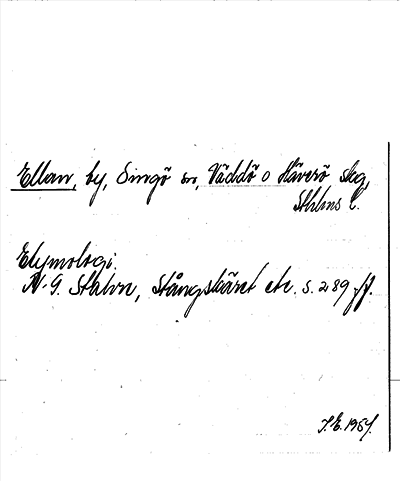 Ellan, by, Singö sn, Väddö o Häverö skg,
Sthlms l.
Etymologi.
N. G. Stahre, Stångskäret etc. s. 289 ff.
I.E. 1957.